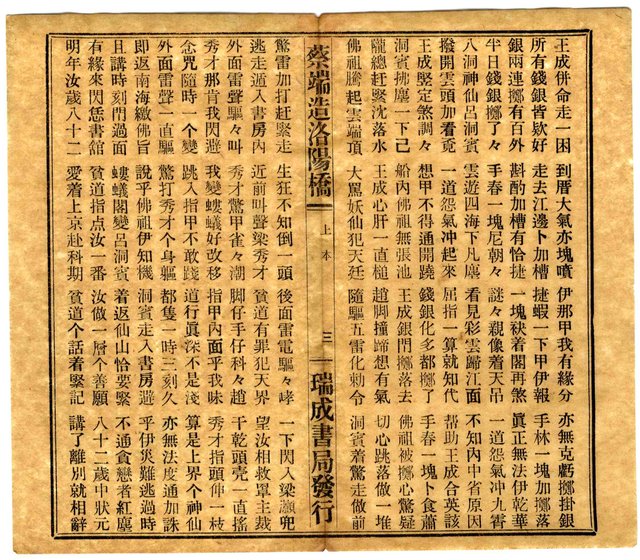 王成併命走一困 到厝大氣亦塊噴 伊那甲我有緣分 亦無克虧擲掛銀
所有錢銀皆欵好 走去江邊卜加槽 捷蝦一下甲伊報 手林一塊加擲落
銀兩連擲有百外 斟酌加槽有恰捷 一塊袂着閣再煞 眞正無法伊乾華
半日錢銀擲了々 手舂一塊尼朝々 謎々親像着天吊 一道怨氣冲九霄
八洞神仙呂洞賓 雲遊四海下凡塵 看見彩雲歸江面 不知內中省原因
撥開雲頭加看覔 一道怨氣冲起來 屈指一算就知代 帮助王成合英該
王成堅定煞調々 想甲不得通開蹺 錢銀化多都擲了 手舂一塊卜食蕭
洞賓拂塵一下己 船內佛祖無張池 王成銀門擲落去 佛祖被擲心驚疑
隴總赶緊沈落水 王成心肝一直槌 趙脚撞蹄想有氣 切心跳落做一堆
佛祖騰起雲端頂 大罵妖仙犯天廷 隨驅五雷化勅令 洞賓着驚走做前
蔡端造洛陽橋 上本 三 瑞成書局發行
驚雷加打赶緊走 生狂不知倒一頭 後面雷電驅々哮 一下閃入梁灝兜
逃走遁入書房內 近前叫聲梁秀才 貧道有罪犯天界 望汝相救罩主裁
外面雷聲驅々叫 秀才驚甲雀々潮 脚仔手仔科々趙 干乾頭壳一直搖
秀才那肯我閃避 我變螻蟻好改移 指甲內面乎我味 秀才指頭伸一枝
念咒隨時一個變 跳入指甲不敢踐 道行眞深不是淺 算是上界个神仙
外面雷聲一直驅 驚打秀才个身軀 都隻一時三刻久 亦無法度通加誅
即返南海繳佛旨 說乎佛祖伊知機 洞賓走入書房避 乎伊災難逃過時
且講時刻門過面 螻蟻閣變呂洞賓 着返仙山恰要緊 不通貪戀者紅塵
有緣來閃恁書館 貧道指点汝一番 汝做一層个善願 八十二歲中狀元
明年汝歲八十二 愛着上京赴科期 貧道个話着緊記 講了離別就相辭